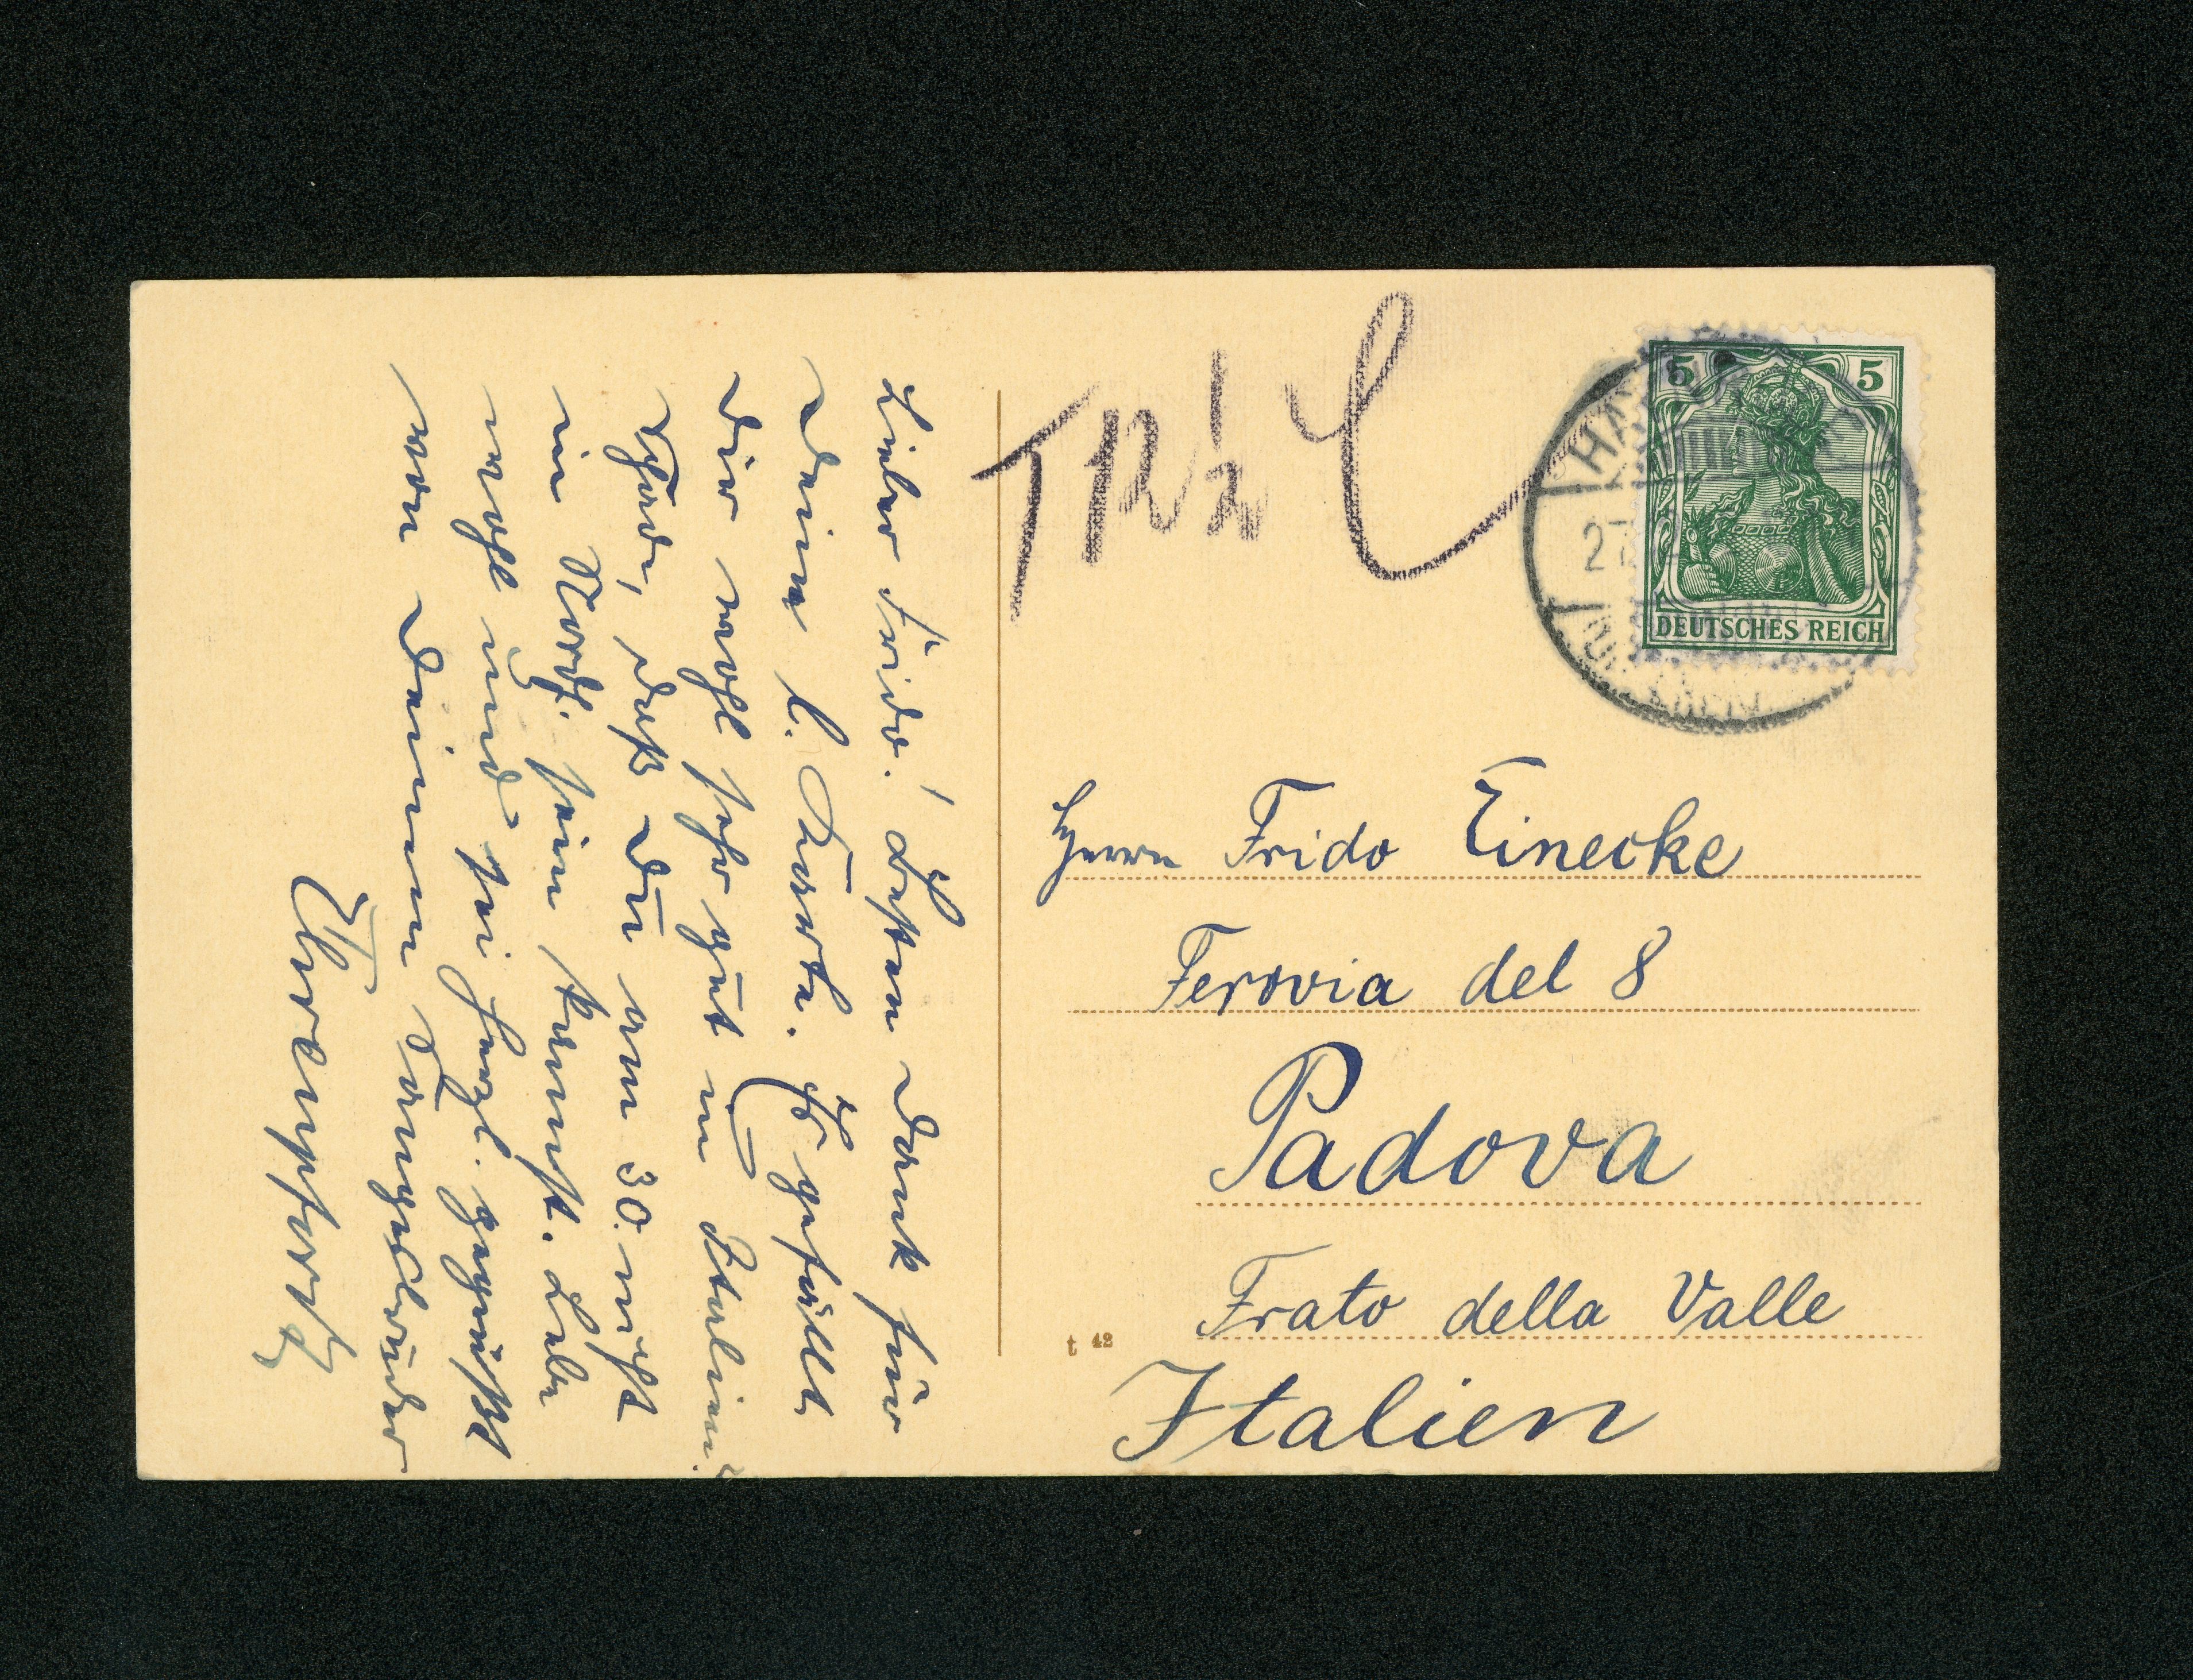 Lieber Frido! Besten Dank für
Deine l. Karte. Es gefällt
Dir wohl sehr gut in Italien.
Schade, daß Du am 30. nicht
in Nordh. sein kannst. Lebe
wohl und sei herzl. gegrüßt
von Deinem Sangesbruder
T 12 1/2 C
5 5
DEUTSCHES REICH
Herrn Frido Einecke
Ferovia del 8
Padova
Frato della Valle
Italien
t 42